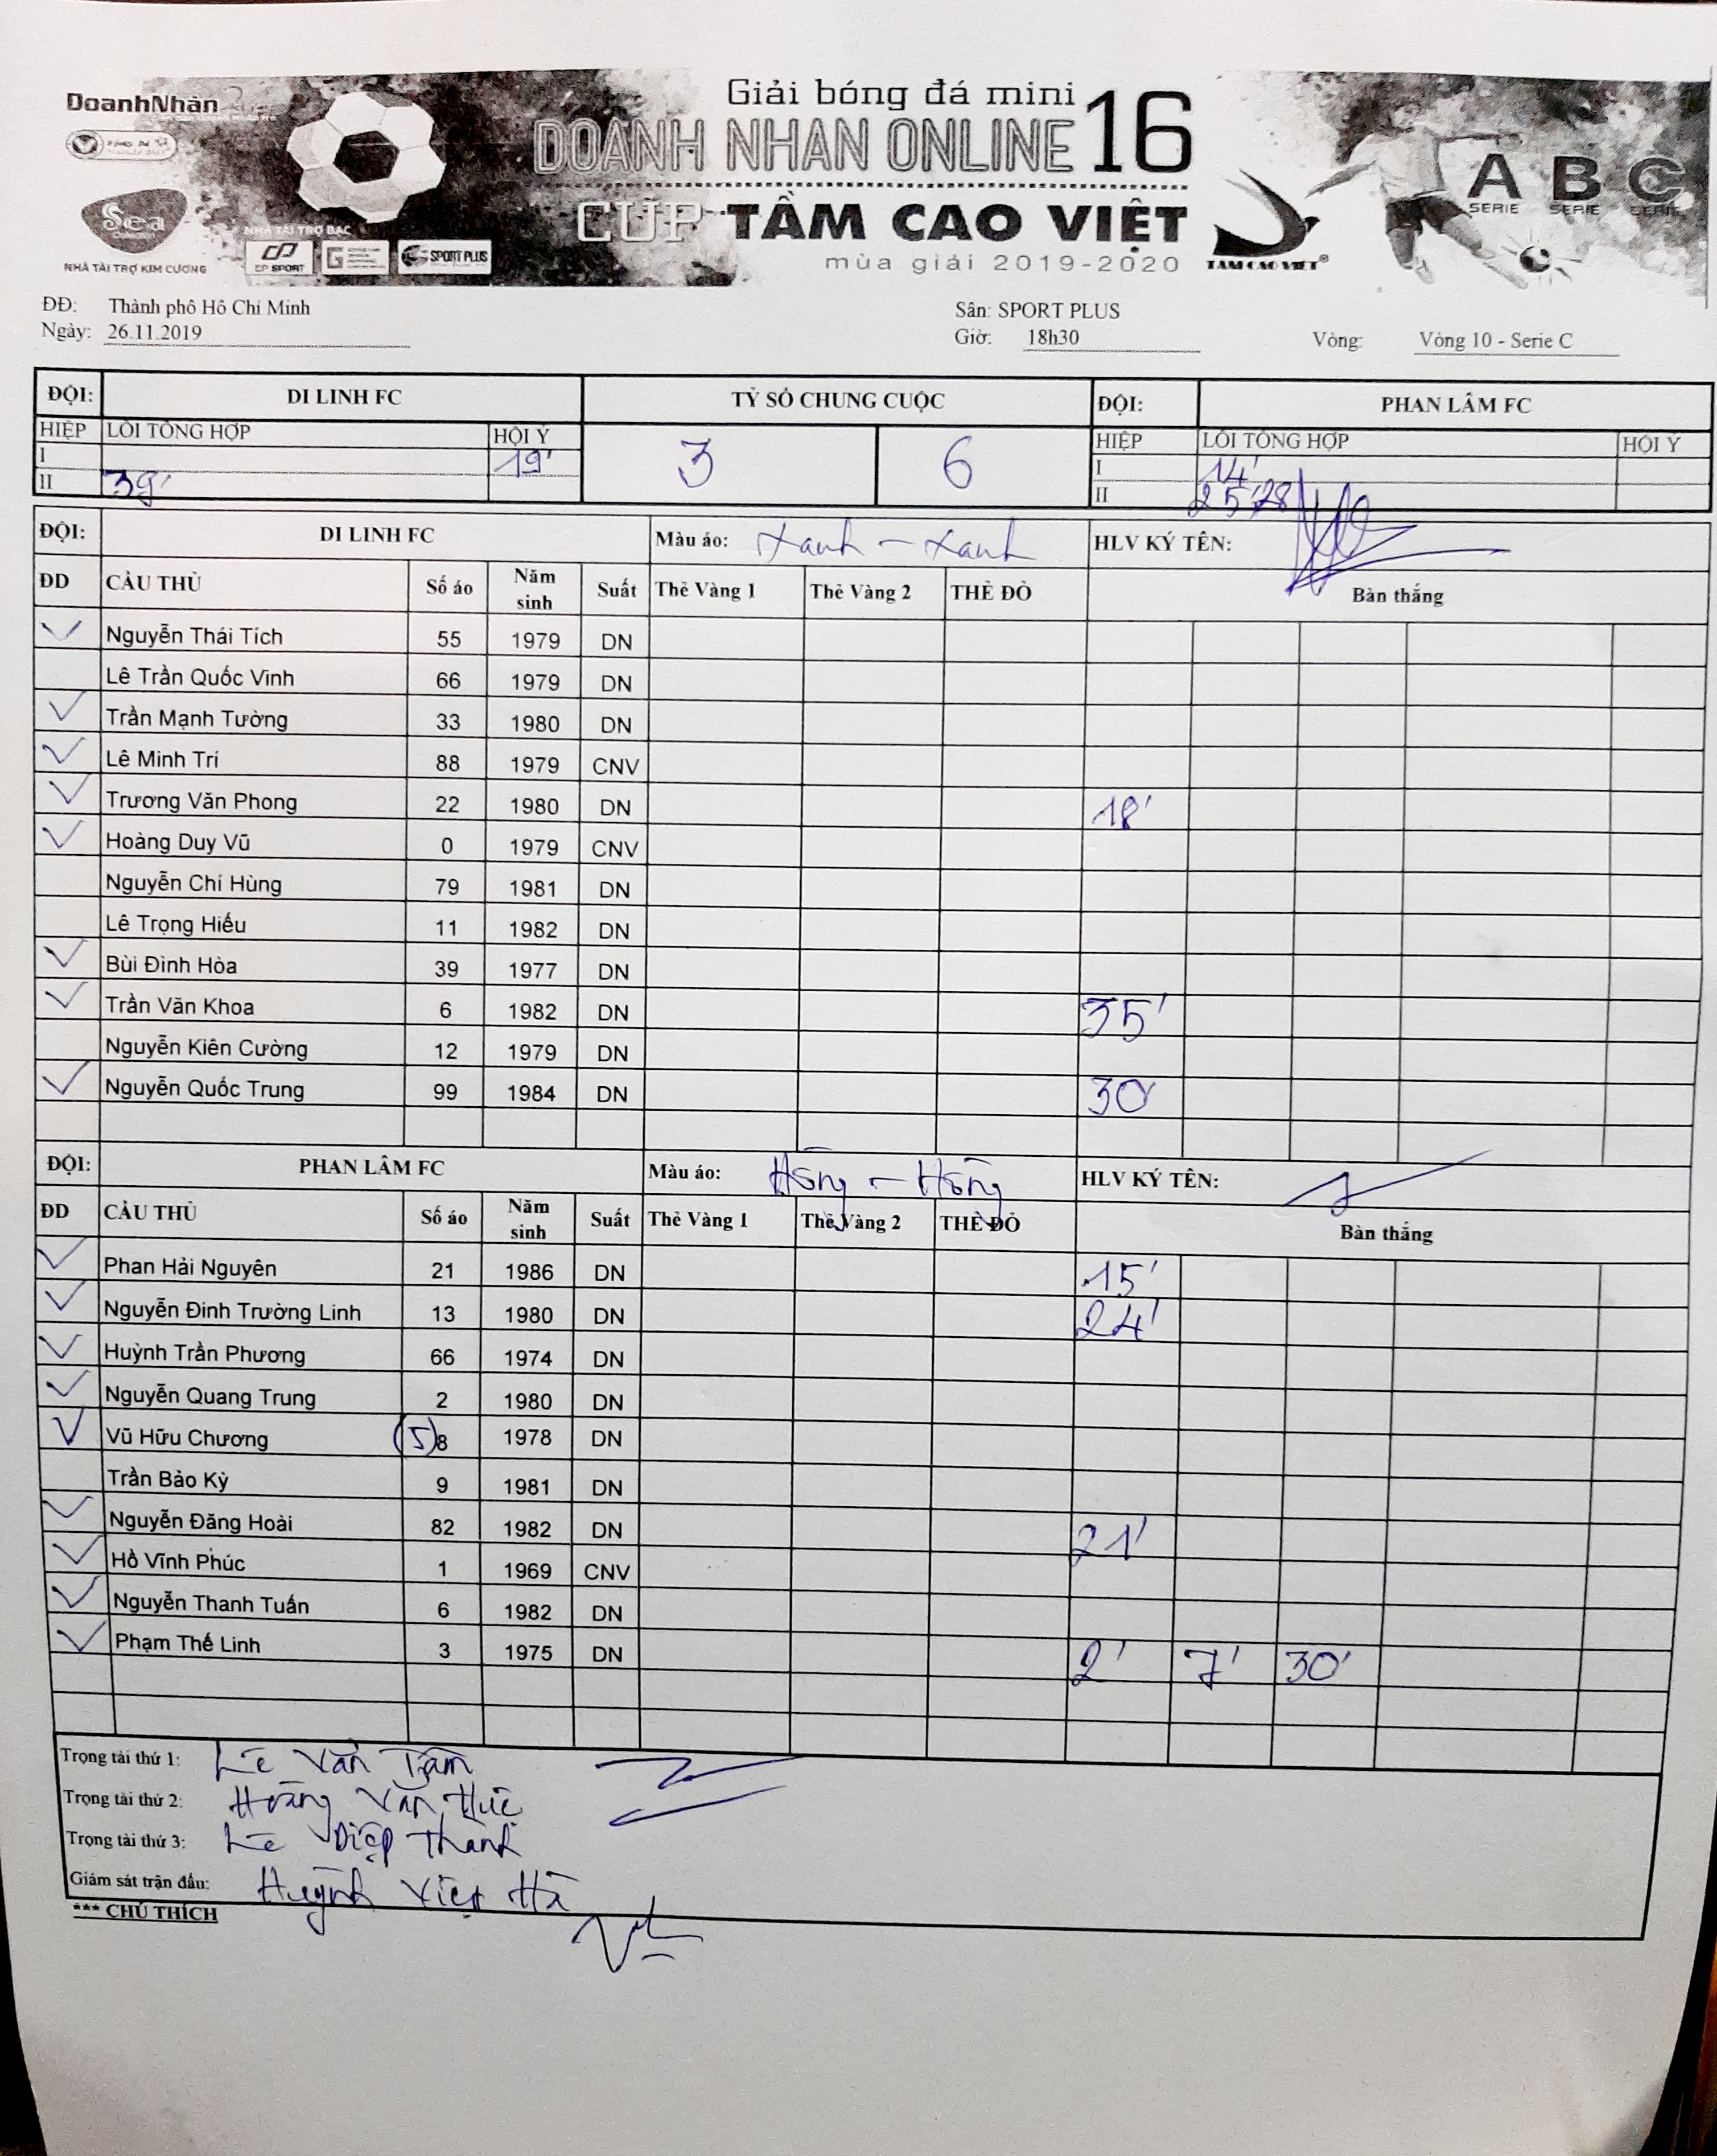 DoanhNhân
Giải bóng đá mini
DOANH NHÂN ONLINE 16
CUP TẦM CAO VIỆT
mùa giải 2019-2020
Sea
NHÀ TÀI TRỢ KIM CƯƠNG
NHÀ TÀI TRỢ BẠC
CP SPORT
SPORT PLUS
TAM CAO VIET®
A SERIE B SERIE C SERIE
ĐĐ: Thành phố Hồ Chí Minh Sân: SPORT PLUS
Ngày: 26.11.2019 Giờ: 18h30 Vòng: Vòng 10 - Serie C
ĐỘI: DI LINH FC TỶ SỐ CHUNG CUỘC ĐỘI: PHAN LÂM FC
HIỆP LỖI TỔNG HỢP HỘI Ý 3 6 HIỆP LỖI TỔNG HỢP HỘI Ý
I 19' I 14'
II 39' II 25' 28
ĐỘI: DI LINH FC Màu áo: Xanh - Xanh HLV KÝ TÊN:
ĐD CẦU THỦ Số áo Năm sinh Suất Thẻ Vàng 1 Thẻ Vàng 2 THẺ ĐỎ Bàn thắng
Nguyễn Thái Tích 55 1979 DN
Lê Trần Quốc Vinh 66 1979 DN
Trần Mạnh Tường 33 1980 DN
Lê Minh Trí 88 1979 CNV
Trương Văn Phong 22 1980 DN 18'
Hoàng Duy Vũ 0 1979 CNV
Nguyễn Chí Hùng 79 1981 DN
Lê Trọng Hiếu 11 1982 DN
Bùi Đình Hòa 39 1977 DN
Trần Văn Khoa 6 1982 DN 35'
Nguyễn Kiên Cường 12 1979 DN
Nguyễn Quốc Trung 99 1984 DN 30'
ĐỘI: PHAN LÂM FC Màu áo: Hồng - Hồng HLV KÝ TÊN:
ĐD CẦU THỦ Số áo Năm sinh Suất Thẻ Vàng 1 Thẻ Vàng 2 THẺ ĐỎ Bàn thắng
Phan Hải Nguyên 21 1986 DN 15'
Nguyễn Đinh Trường Linh 13 1980 DN 24'
Huỳnh Trần Phương 66 1974 DN
Nguyễn Quang Trung 2 1980 DN
Vũ Hữu Chương (5) 8 1978 DN
Trần Bảo Kỳ 9 1981 DN
Nguyễn Đăng Hoài 82 1982 DN 21'
Hồ Vĩnh Phúc 1 1969 CNV
Nguyễn Thanh Tuấn 6 1982 DN
Phạm Thế Linh 3 1975 DN 2' 7' 30'
Trọng tài thứ 1: Lê Văn Trầm
Trọng tài thứ 2: Hoàng Văn Hức
Trọng tài thứ 3: Lê Diệp Thành
Giám sát trận đấu: Huỳnh Việt Hà
*** CHÚ THÍCH